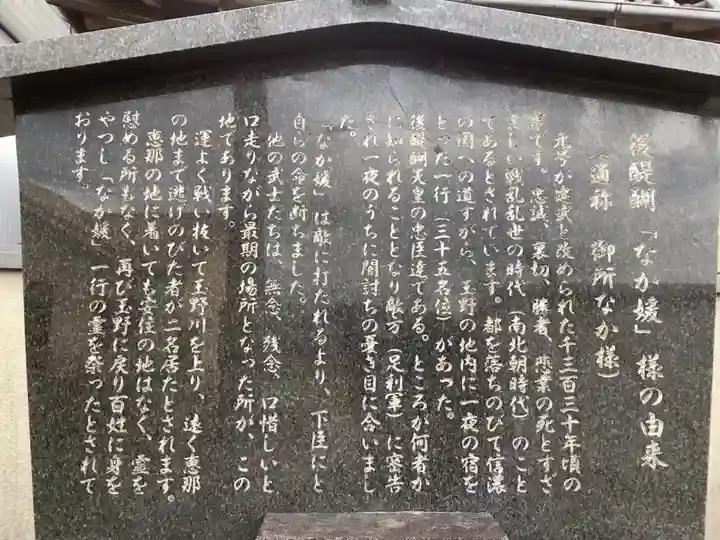 後醍醐「なか媛」様の由来
(通称 御所なか様)
元号が建武と改められた千三百三十年頃の
昔です。忠誠、裏切、勝者、非業の死とすざ
ましい戦乱乱世の時代(南北朝時代)のこと
であるとされています。都を落ちのびて信濃
の国への道すがら、玉野の地内に一夜の宿を
とった一行(三十五名位)があった。
後醍醐天皇の忠臣達である。ところが何者か
に知られることとなり敵方(足利軍)に密告
され一夜のうちに闇討ちの憂き目に合いまし
た。
「なか媛」は敵に打たれるより、下臣にと
自らの命を断ちました。
他の武士たちは、無念、残念、口惜しいと
口走りながら最期の場所となった所が、この
地であります。
運よく戦い抜いて玉野川を上り、遠く恵那
の地まで逃げのびた者が二名居たとされます。
恵那の地に着いても安住の地はなく、霊を
慰める所もなく、再び玉野に戻り百姓に身を
やつし「なか媛」一行の霊を祭ったとされて
おります。